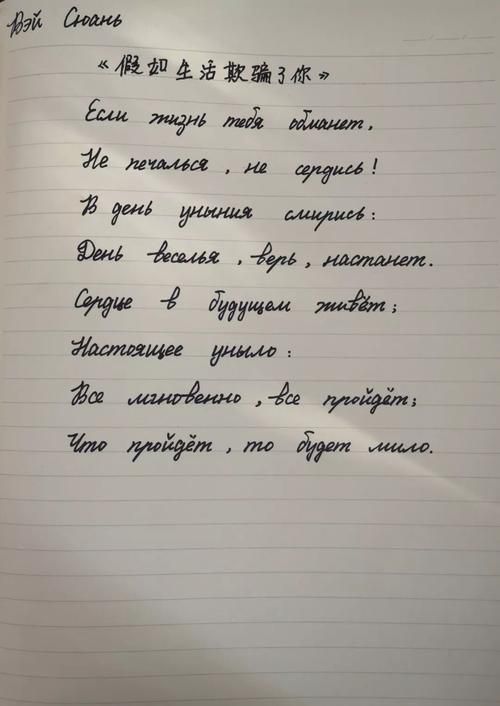 Вэй Сюань
《假如生活欺骗了你》
Если жизнь тебя обманет,
Не печалься, не сердись!
В день уныния смирись:
День веселья, верь, настанет.
Сердце в будущем живёт;
Настоящее уныло:
Все мгновенно, все пройдёт;
Что пройдёт, то будет мило.